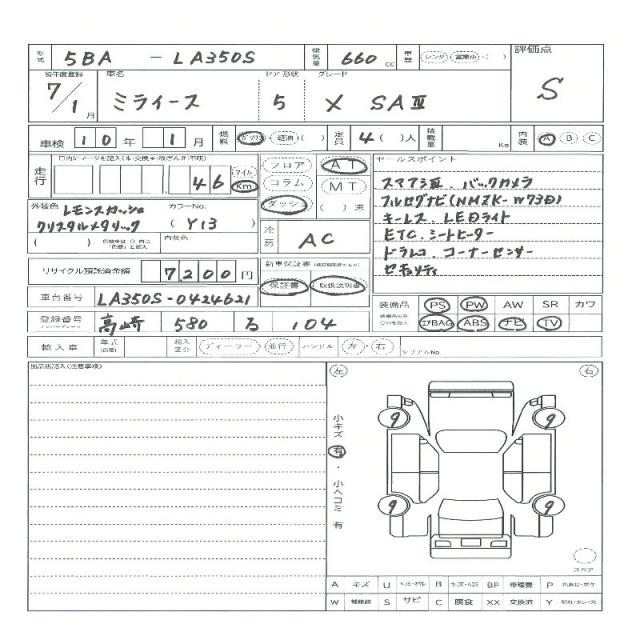 型式 5BA - LA350S 排気量 660 cc 車歴 レンタ 営業車 ( ) 評価点
初年度登録 車名 ドア 形状 グレード
7/1月 ミライース 5 X SAⅢ S
車検 10年 1月 燃料 ガソリン・軽油・( ) 定員 4( )人 積載量 Kg 内装 A B C
走行 46 マイル Km フロア AT セールスポイント
コラム MT スマアシⅢ、バックカメラ
ダッシュ ( )速 フルセグナビ(NMZK-W73D)
外装色 レモンスカッシュ カラーNo. キーレス、LEDライト
クリスタルメタリック (Y13) 冷房 AC ETC、シートヒーター
( ) 内装色 ドラレコ、コーナーセンサー
リサイクル預託済金額 7200円 新車保証書 セキュリティ
保証書 取扱説明書
車台番号 LA350S-0424621 装備品 PS PW AW SR カワ
登録番号 高崎 580 る 104 エアBAG ABS ナビ TV
輸入車 年式 輸入区分 ディーラー・並行 ハンドル 左・右 シリアルNo.
出品店記入(注意事項) 左 右
小キズ 有・小ヘコミ 有
9 9
9 9
スペア
A キズ U B キズ・ヘコミ BP 修理費 P
W S サビ C 腐食 XX 交換済 Y